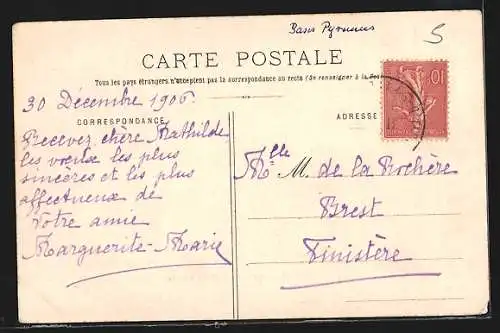 Bass Pyrenees
5
CARTE POSTALE
Tous les pays étrangers n'acceptent pas la correspondance au recto (Se renseigner à la Poste
30 Décembre 1906.
CORRESPONDANCE
ADRESSE
10
Recevez chère Mathilde
les voeux les plus
sincères et les plus
affectueux de
Votre amie
Marguerite-Marie
Mlle M. de la Rochère
Brest
Finistère